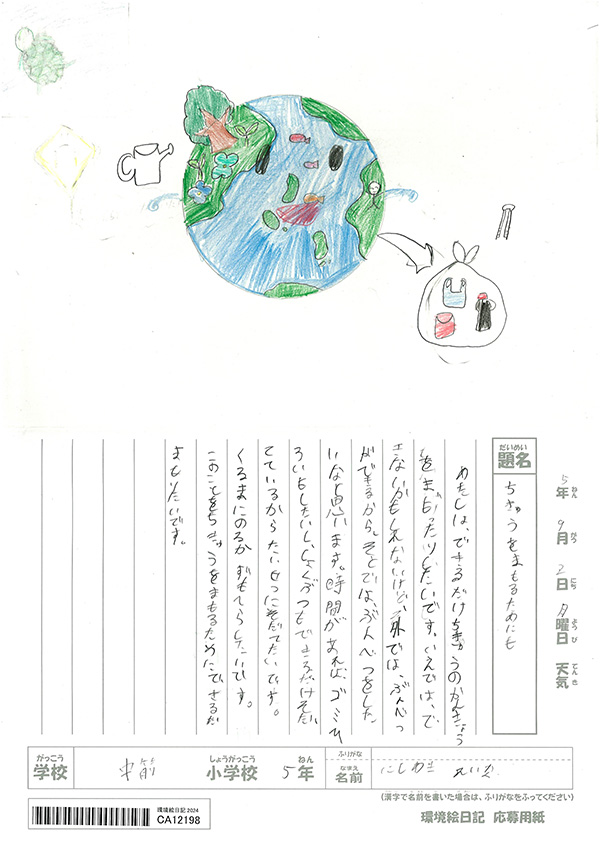 5年 9月 2日 月曜日 天気
ねん がつ にち ようび てんき
だいめい
題名
ちきゅうをまもるためにも
わたしは、できるだけちきゅうのかんきょう
をまもったりしたいです。いえでは、で
きないかもしえないけど、外では、ぶんべつ
ができるから、そとでは、ぶんべつをした
いなと思います。時間があれば、ゴミひ
ろいもしたいし、しょくぶつもできるだけそだ
てているからたいせつにそだてたいです。
くるまにのるかずもへらしたいです。
このことをちきゅうをまもるためにできるだ
まもりたいです。
がっこう しょうがっこう ねん ふりがな なまえ
学校 小学校 5年 名前
(漢字で名前を書いた場合は、ふりがなをふってください)
環境絵日記 応募用紙
環境絵日記2024
CA12198